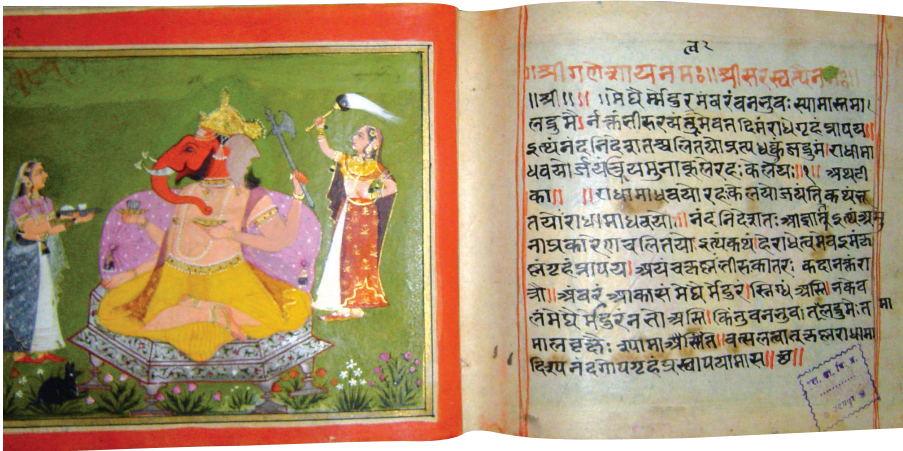 ॥श्रीगणेशायनमः॥श्रीसरस्वत्यैनमः॥
॥श्री॥ ॥मेघैर्मेदुरमंबरंवनभुवः श्यामास्तमा।
लद्रुमैर्नक्तंभीरुरयंत्वमेवतदिमंराधेगृहंप्रापय॥
इत्थंनंदनिदेशतश्चलितयोःप्रत्यध्वकुंजद्रुमंराधामा
धवयोर्जयंतियमुनाकूलेरहःकेलयः॥१॥ अथटी
का॥ ॥राधामाधवयोरहःकेलयोजयंति कथंभू
तयोःराधामाधवयोः॥ नंदनिदेशतः आज्ञातः इत्थंअमु
नाप्रकारेणचलितयोः इत्थंकथंहेराधेत्वमेवइमंकृ
ष्णंगृहंप्रापय अयंचकृष्णःभीरुकातरः कदानक्तंरा
त्रौ॥ अंबरं आकाशं मेघैर्मेदुरंस्निग्धं अस्ति नकेव
लंमेघैर्मेदुरंनभोअस्ति।किंतुवनभुवः तमालद्रुमैःत
मालवृक्षैः श्यामाः
वत्सलत्वात्कृष्णंराधामा
दिश्यनंदगोपगृहंप्रस्थापयामास॥छ॥